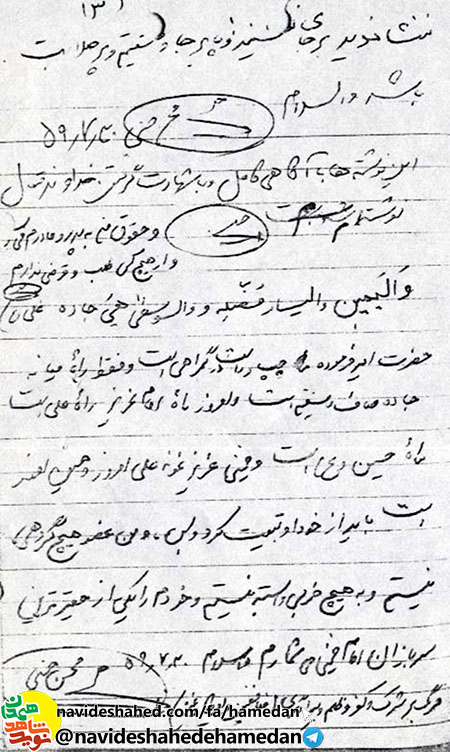 ۱۳
بنشانید برجای و پابرجا و مستقیم و پر صلابت
باشد والسلام
محسن ۵۹/۷/۳۰
این نوشته ها با آگاهی کامل و با شهادت گرفتن خداوند متعال
نوشتم و حقوق من به پدر و مادرم
و از هیچ کس طلب و قرضی ندارم
وَالیَمین والیسار مَضَلّه و والوسطی هی جاده علی
حضرت امیر فرموده چپ و راست گمراهی است و فقط راه میانه
جاده صاف و مستقیم است و امروز راهٔ امام عزیز راهٔ علی است
راهٔ حسین (ع) است و خمینی عزیز نمونه علی امروز و حسین امروز
است باید از خدا تبعیت کرد و بس، و من عضو هیچ گروهی
نیستم و به هیچ حزبی وابسته نیستم و خودم را یکی از حقیرترین
سربازان امام خمینی می شمارم والسلام ۵۹/۷/۳۰ محسن
مرگ بر شرک و کفر و ظلم
navideshahed.com/fa/hamedan
@navideshahedehamedan
نوید شاهد
همدان